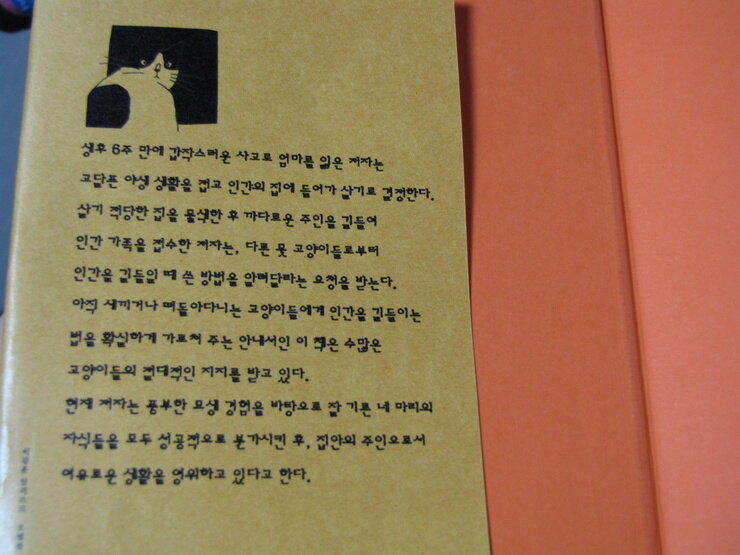 생후 6주 만에 갑작스러운 사고로 엄마를 잃은 저자는
고달픈 야생 생활을 접고 인간의 집에 들어가 살기로 결정한다.
살기 적당한 집을 물색한 후 까다로운 주인을 길들여
인간 가족을 접수한 저자는, 다른 뭇 고양이들로부터
인간을 길들일 때 쓴 방법을 알려달라는 요청을 받는다.
아직 새끼거나 떠돌아다니는 고양이들에게 인간을 길들이는
법을 확실하게 가르쳐 주는 안내서인 이 책은 수많은
고양이들의 절대적인 지지를 받고 있다.
현재 저자는 풍부한 모생 경험을 바탕으로 잘 기른 네 마리의
자식들을 모두 성공적으로 분가시킨 후, 집안의 주인으로서
여유로운 생활을 영위하고 있다고 한다.